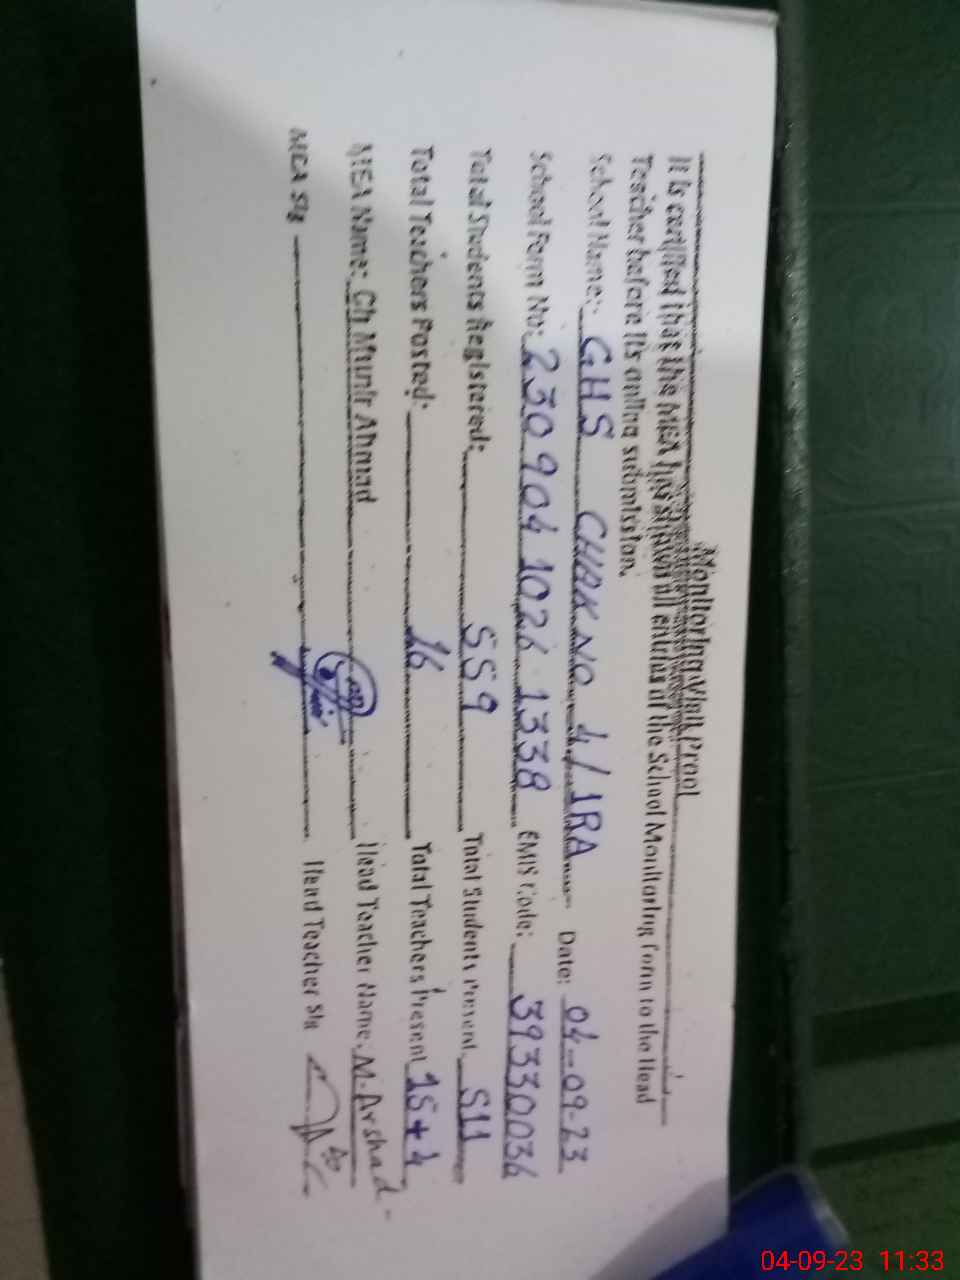 Monitoring Visit Proof
It is certified that the MEA has shown all entries of the School Monitoring Form to the Head
Teacher before its online submission.
School Name:- GHS CHAK NO 4/1RA Date: 04-09-23
School Form No: 230904 1026 1338 EMIS Code: 39330036
Total Students Registered: 559 Total Students Present 511
Total Teachers Posted: 16 Total Teachers Present 15+4
MEA Name: Ch Munir Ahmad Head Teacher Name: M. Arshad
MEA Sig Head Teacher Sig
04-09-23 11:33